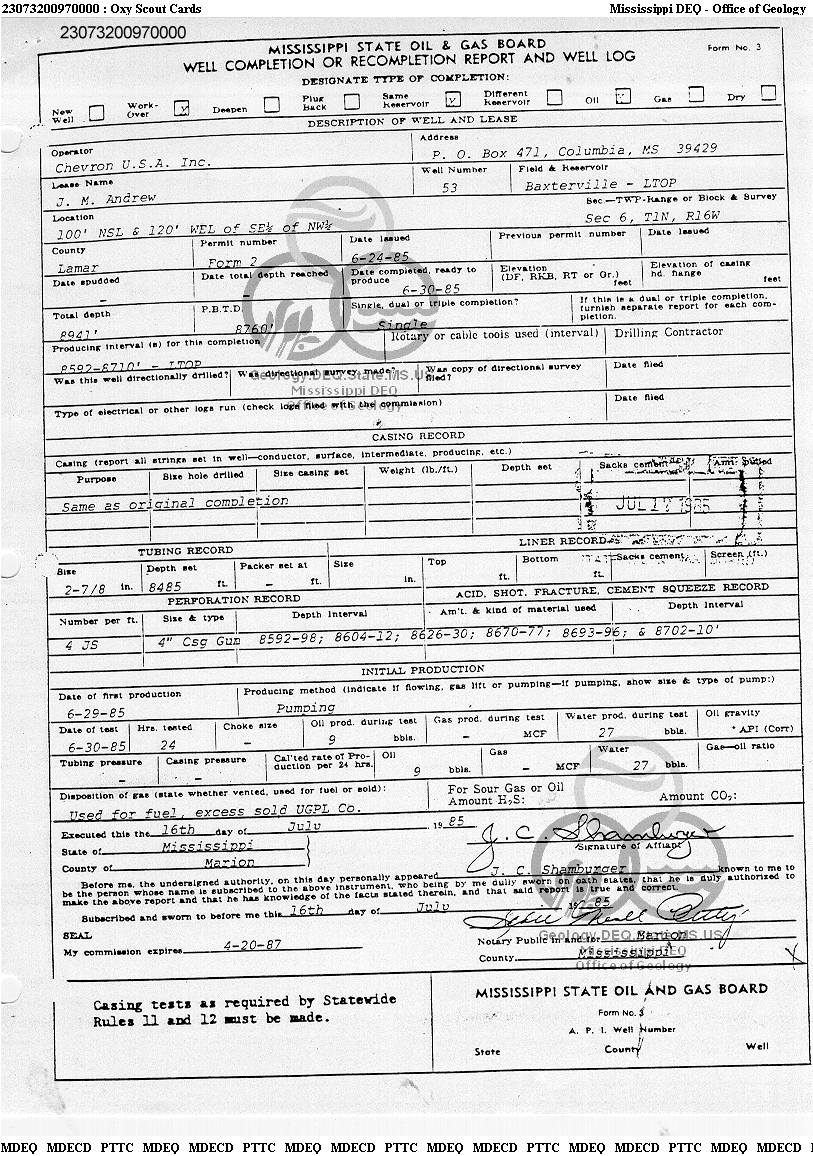 23073200970000 : Oxy Scout Cards Mississippi DEQ - Office of Geology
23073200970000
MISSISSIPPI STATE OIL & GAS BOARD Form No. 3
WELL COMPLETION OR RECOMPLETION REPORT AND WELL LOG
DESIGNATE TYPE OF COMPLETION:
New Well Work-Over Y Deepen Plug Back Same Reservoir Y Different Reservoir Oil Y Gas Dry
DESCRIPTION OF WELL AND LEASE
Operator Address
Chevron U.S.A. Inc. P. O. Box 471, Columbia, MS 39429
Lease Name Well Number Field & Reservoir
J. M. Andrew 53 Baxterville - LTOP
Location Sec.—TWP-Range or Block & Survey
100' NSL & 120' WEL of SE¼ of NW¼ Sec 6, T1N, R16W
County Permit number Date Issued Previous permit number Date Issued
Lamar Form 2 6-24-85
Date spudded Date total depth reached Date completed, ready to produce Elevation (DF, RKB, RT or Gr.) feet Elevation of casing hd. flange feet
- - 6-30-85
Total depth P.B.T.D. Single, dual or triple completion? If this is a dual or triple completion, furnish separate report for each completion.
8941' 8760' Single
Producing interval (s) for this completion Rotary or cable tools used (interval) Drilling Contractor
8592-8710' - LTOP
Was this well directionally drilled? Was directional survey made? Was copy of directional survey filed? Date filed
Geology.DEQ.State.MS.US
Mississippi DEQ
Office of Geology
Type of electrical or other logs run (check logs filed with the commission) Date filed
CASING RECORD
Casing (report all strings set in well—conductor, surface, intermediate, producing, etc.)
Purpose Size hole drilled Size casing set Weight (lb./ft.) Depth set Sacks cement Amt. pulled
Same as original completion
JUL 17 1985
TUBING RECORD LINER RECORD
Size Depth set Packer set at Size Top Bottom Sacks cement Screen (ft.)
2-7/8 in. 8485 ft. - ft. in. ft. ft.
PERFORATION RECORD ACID, SHOT, FRACTURE, CEMENT SQUEEZE RECORD
Number per ft. Size & type Depth Interval Am't. & kind of material used Depth Interval
4 JS 4" Csg Gun 8592-98; 8604-12; 8626-30; 8670-77; 8693-96; & 8702-10'
INITIAL PRODUCTION
Date of first production Producing method (indicate if flowing, gas lift or pumping—if pumping, show size & type of pump:)
6-29-85 Pumping
Date of test Hrs. tested Choke size Oil prod. during test Gas prod. during test Water prod. during test Oil gravity
6-30-85 24 - 9 bbls. - MCF 27 bbls. ° API (Corr)
Tubing pressure Casing pressure Cal'ted rate of Production per 24 hrs. Oil Gas Water Gas—oil ratio
- - 9 bbls. - MCF 27 bbls.
Disposition of gas (state whether vented, used for fuel or sold): For Sour Gas or Oil
Amount H₂S: Amount CO₂:
Used for fuel, excess sold UGPL Co.
Executed this the 16th day of July , 1985
J. C. Shamburger
State of Mississippi Signature of Affiant
County of Marion
Before me, the undersigned authority, on this day personally appeared J. C. Shamburger known to me to
be the person whose name is subscribed to the above instrument, who being by me dully sworn on oath states, that he is duly authorized to
make the above report and that he has knowledge of the facts stated therein, and that said report is true and correct.
Subscribed and sworn to before me this 16th day of July , 1985
SEAL
My commission expires 4-20-87 Notary Public in and for Marion
County, Mississippi X
Geology.DEQ.State.MS.US
Mississippi DEQ
Office of Geology
Casing tests as required by Statewide
Rules 11 and 12 must be made.
MISSISSIPPI STATE OIL AND GAS BOARD
Form No. 3
A. P. I. Well Number
State County Well
MDEQ MDECD PTTC MDEQ MDECD PTTC MDEQ MDECD PTTC MDEQ MDECD PTTC MDEQ MDECD PTTC MDEQ MDECD